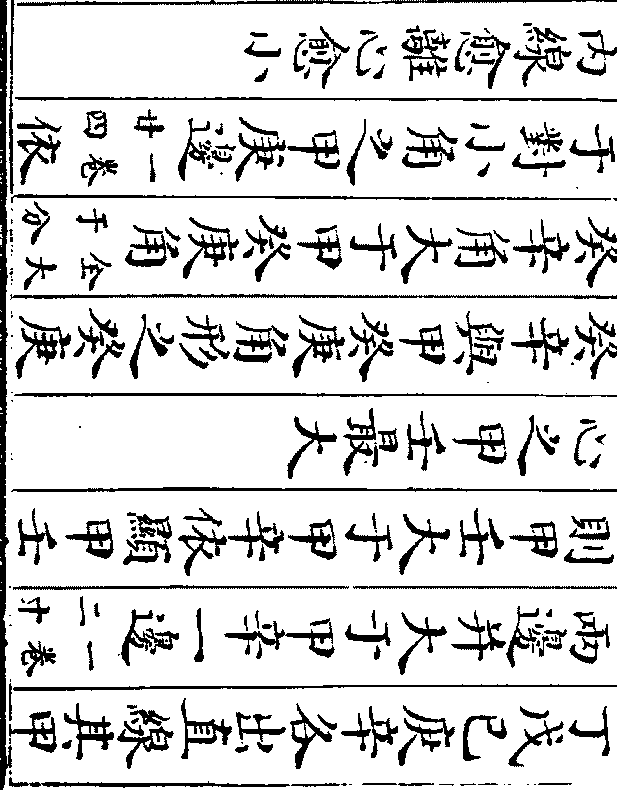 丁戊己庚辛各出直線其甲
兩邊并大于甲辛一邊一卷二十
則甲壬大于甲辛依顯甲壬
心之甲壬最大
癸辛與甲癸庚角形之癸庚
癸辛角大于甲癸庚角全大于分
于對小角之甲庚邊一卷廿四依
內線愈離心愈小